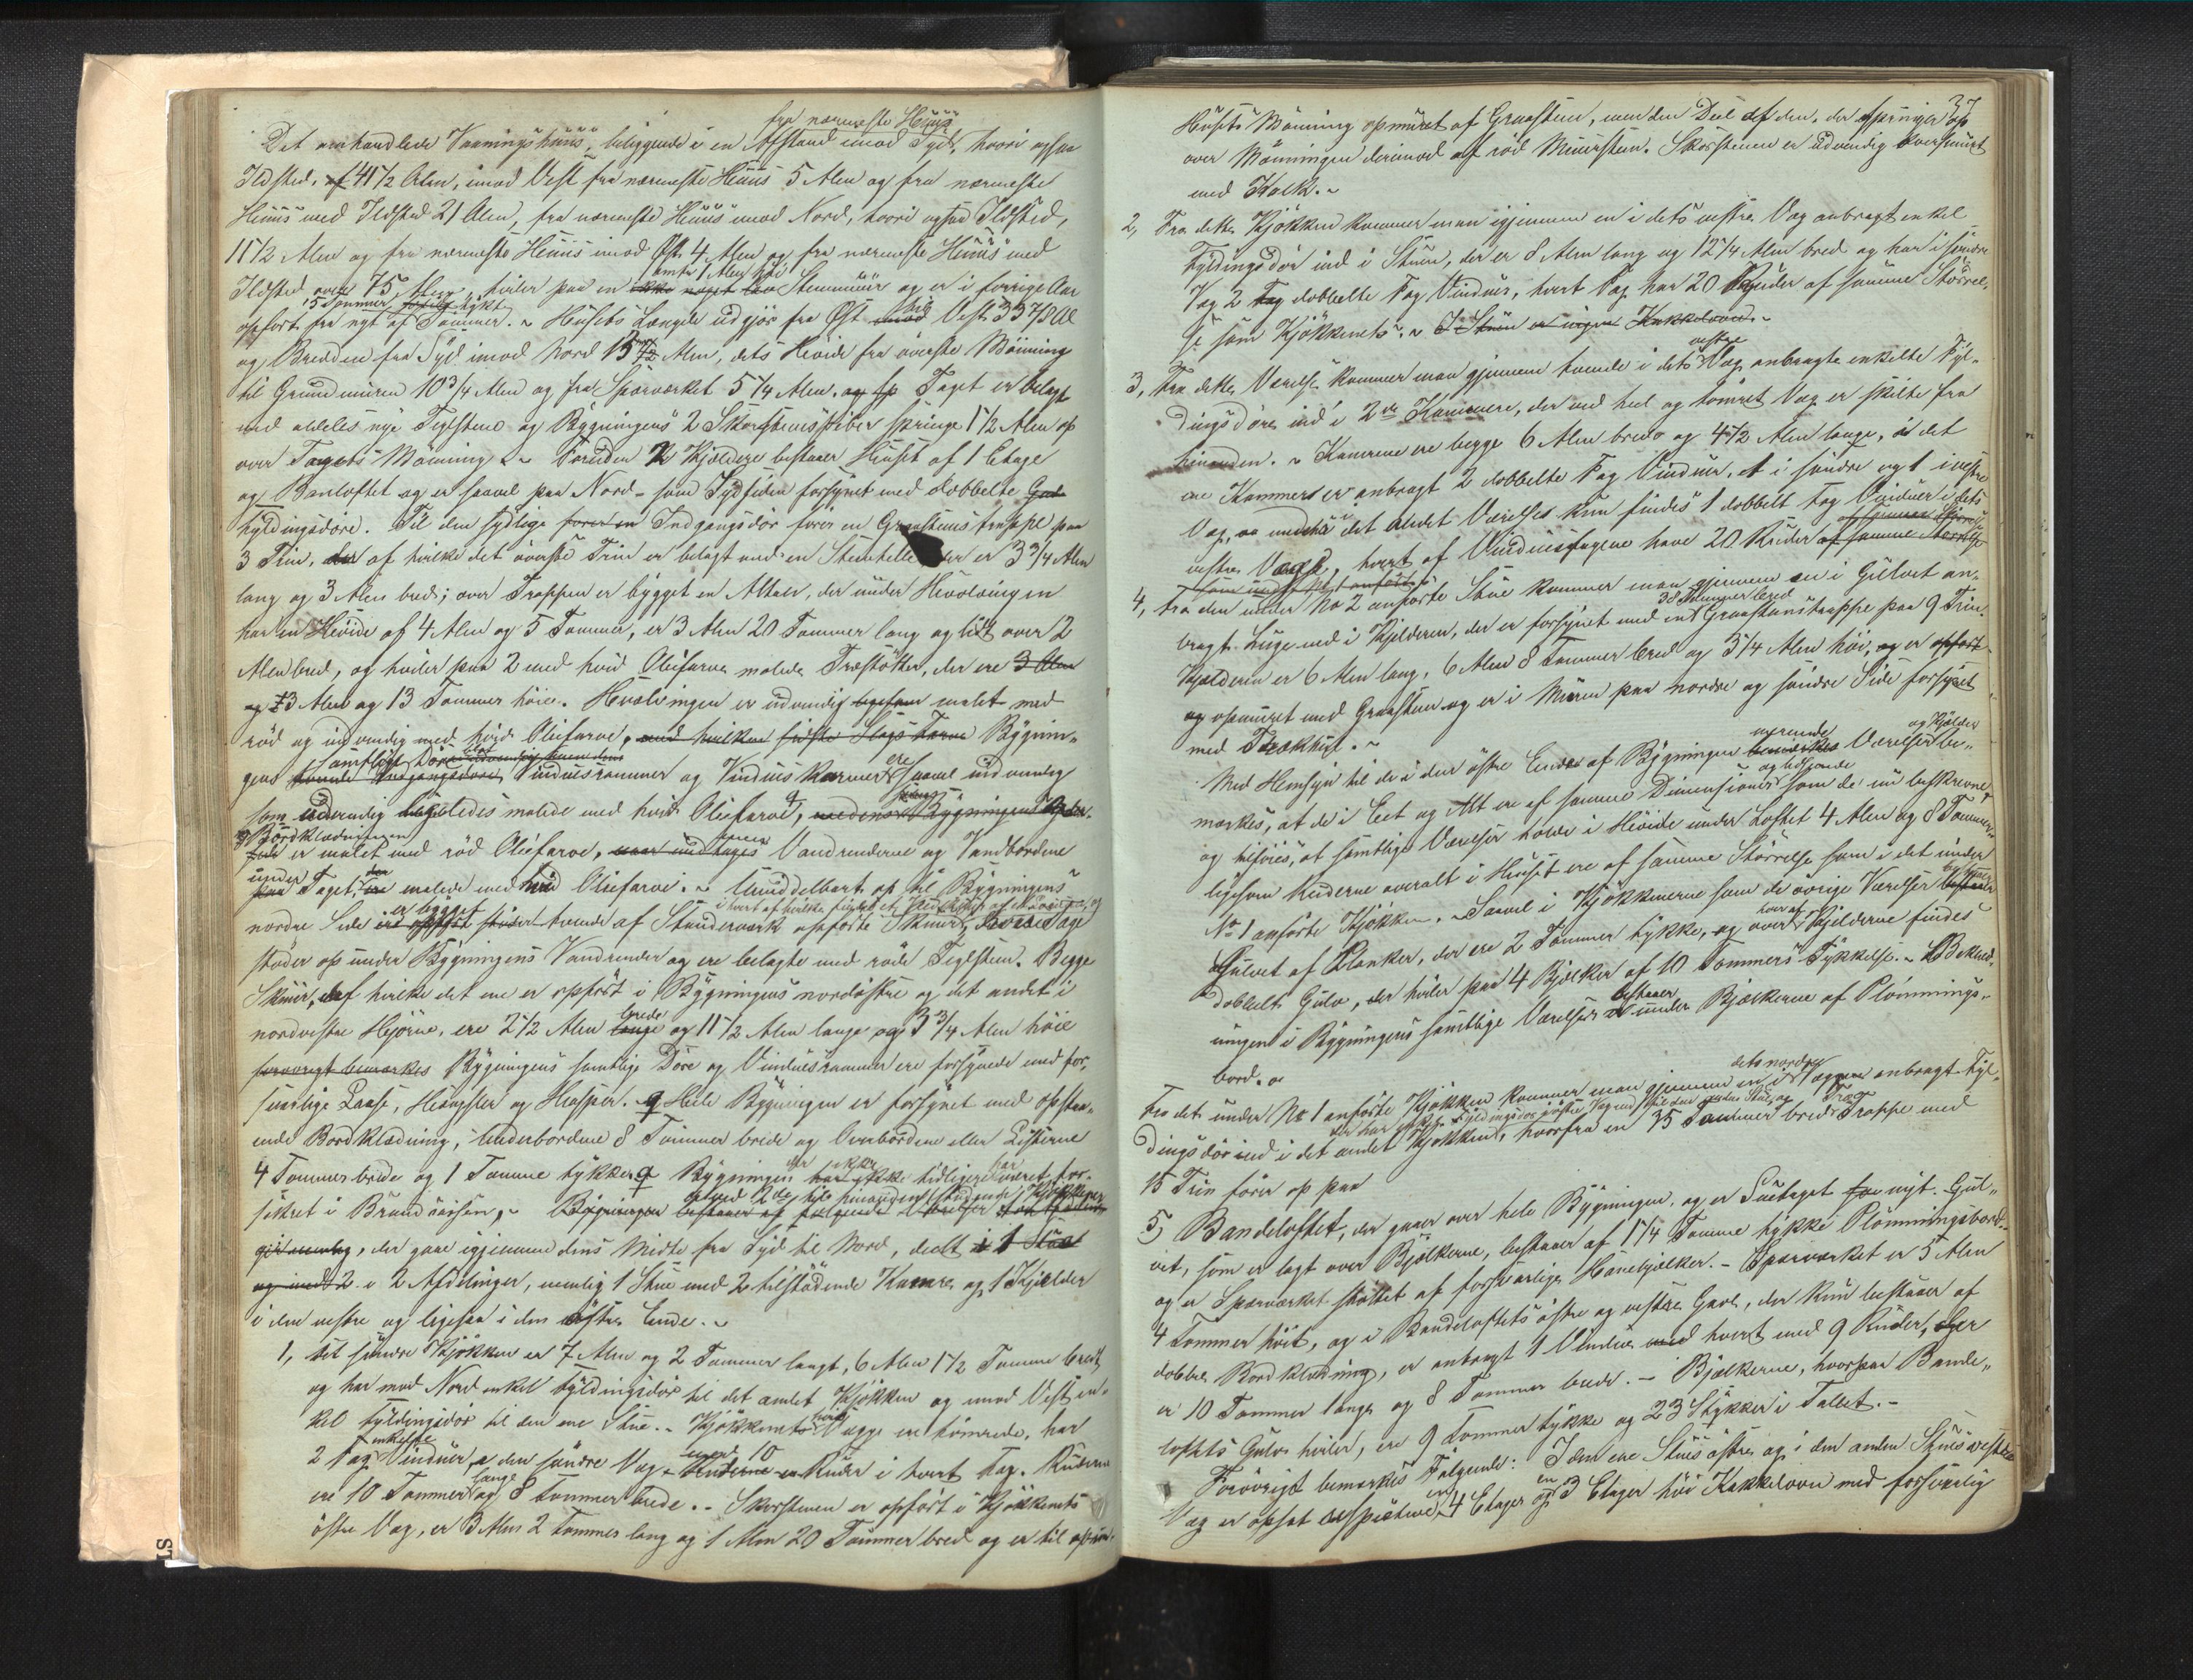 fra nærmeste Huus
Det omhandlede Vaaningshuus, beliggende i en Afstand imod Syd, hvori ogsaa
Ildsted, af 41 1/2 Alen, imod Vest fra nærmeste Huus 5 Alen og fra nærmeste
Huus med Ildsted 21 Alen, fra nærmeste Huus imod Nord, hvori ogsaa Ildsted,
11 1/2 Alen og fra nærmeste Huus imod Øst 4 Alen og fra nærmeste Huus med
omtr 1 Alen høi
Ildsted over 75 Alen, hviler paa en ikke noget lav Steenmuur og er i forrige Aar
5 Tommer tykt
opført fra nyt af Tømmer. ~ Husets Længde udgjør fra Øst imod til Vest 33 7/8 Al
og Bredden fra Syd imod Nord 15 1/2 Alen, dets Høide fra øverste Mønning
til Grundmuren 10 3/4 Alen og fra Sparværket 5 1/4 Alen. og er Taget er belagt
med aldeles nye Teglsteen og Bygningens 2 Skorsteenspiber springe 1 1/2 Alen op
over Tagets Mønning. ~ Foruden 2 Kjældere bestaaer Huset af 1 Etage
og Banloftet og er saavel paa Nord- som Sydsiden forsynet med dobbelte
Fyldingsdøre. Til den sydlige fører en Indgangsdør fører en Graasteenstrappe paa
3 Trin, der af hvilke det øverste Trin er belagt med en Steenhelle der er 3 3/4 Alen
lang og 3 Alen bred; over Trappen er bygget en Altan, der under Hvælvingen
har en Høide af 4 Alen og 5 Tommer, er 3 Alen 20 Tommer lang og lidt over 2
Alen bred, og hviler paa 2 med hvid Oliefarve malede Træstøtter, der ere 3 Alen
og 3 Alen og 13 Tommer høie. Hvælvingen er udvendig ligesom malet med
rød og indvendig med hvid Oliefarve, med hvilken sidste Slags Farve Bygnin-
samtlige Døre
gens tvende Indgangsdøre Vinduisrammer og Vinduiskarmer ere saavel indvendig
som udvendig ligeledes malede med hvid Oliefarve, medens Bygningens Yder-
og Bordklædningen
side er malet med rød Oliefarve, naar undtages Vandrenderne og Vandbordene
under
paa Taget, der malede med hvid Oliefarve. ~ Umiddelbart op til Bygningens
i hvert af hvilke findes et
nordre Side er bygget er opført støder tvende af Stænderværk opførte Skuur, hvis Tage
støder op under Bygningens Vandrender og ere belagte med røde Teglsteen. Begge
Skuur, af hvilke det ene er opført i Bygningens nordøstre og det andet i
nordvestre Hjørne, ere 2 1/2 Alen lange brede og 11 1/2 Alen lange og 3 3/4 Alen høie
forøvrigt bemærkes Bygningens samtlige Døre og Vinduesrammer ere forsynede med for-
svarlige Laase, Hængsler og Hasper. Hele Bygningen er forsynet med opstaa-
ende Bordklædning, Underbordene 8 Tommer brede og Overbordene eller Listerne
4 Tommer brede og 1 Tomme tykke. Bygningen har ikke tidligere været for-
sikret i Brandkassen. ~ Bygningen bestaaer af følgende Værelser
ved 2de til hinanden stødende Kjøkkener
nemlig, der gaae igjennem dens Midte fra Syd til Nord, deelt i 1 Stue
og med 2 i 2 Afdelinger, nemlig 1 Stue med 2 tilstødende Kamre og 1 Kjælder
i den vestre og ligesaa i den østre Ende. ~
1, Det søndre Kjøkken er 7 Alen og 2 Tommer langt, 6 Alen 1 1/2 Tomme bredt,
og har mod Nord enkel Fyldingsdør til det andet Kjøkken og imod Vest en-
kel Fyldingsdør til den ene Stue. ~ Kjøkkenets Vægge ere tømrede, har
2 Fag enkelte Vinduer i den søndre Væg, med 10 Ruder i hvert Fag. Ruderne
ere 10 Tommer lange og 8 Tommer brede. ~ Skorstenen er opført i Kjøkkenets
østre Væg, er 3 Alen 2 Tommer lang og 1 Alen 20 Tommer bred og er til opover
37
Husets Mønning opmuret af Graasteen, men den Deel af den, der springer op
over Mønningen derimod af rød Muursteen. Skorstenen er udvendig oversmurt
med Kalk. ~
2, Fra dette Kjøkken kommer man igjennem en i dets vestre Væg anbragt enkel
Fyldingsdør ind i Stuen, der er 8 Alen lang og 12 1/4 Alen bred og har i søndre
Væg 2 Fag dobbelte Fag Vinduer, hvert Fag har 20 Ruder af samme Størrel-
se som Kjøkkenets. ~ I Stuen er ingen Kakkelovn. ~
vestre
3, Fra dette Værelse kommer man gjennem tvende i dets Væg anbragte enkelte Fyl-
dingsdøre ind i 2de Kammere, der ved heel og tømret Væg er skilte fra
hinanden. ~ Kamrene ere begge 6 Alen brede og 4 1/2 Alen lange, i det
ene Kammers er anbragt 2 dobbelte Fag Vinduer, 1 i søndre og 1 i vestre
Væg, og medens i det andet Værelses kun findes 1 dobbelt Fag Vinduer i dets
vestre Væg, hvert af Vinduesfagene have 20 Ruder af samme Størrelse
som under No 1 anført.
4, Fra den under No 2 anførte Stue kommer man gjennem en i Gulvet an-
38 Tommer bred
bragt Luge ned i Kjelderen, der er forsynet med en Graasteenstrappe paa 9 Trin.
Kjelderen er 6 Alen lang, 6 Alen 8 Tommer bred og 3 1/4 Alen høi, og er opført
og opmuret med Graasteen og er i Muren paa nordre og søndre Side forsynet
med Trækhul. ~
værende og Kjælder
Med Hensyn til de i den østre Ende af Bygningen bemærkes Værelser be-
mærkes, at de i Eet og Alt ere af samme Dimensioner som de nu beskrevne,
og tilføies, at samtlige Værelser have i Høide under Loftet 4 Alen og 8 Tommer
ligesom Ruderne overalt i Huset ere af samme Størrelse som i det under
No 1 anførte Kjøkken. ~ Saavel i Kjøkkenerne som de øvrige Værelser bestaaer
Gulvet af Planker, der ere 2 Tommer tykke, og over Kjelderne findes
dobbelt Gulv, der hviler paa 4 Bjelker af 10 Tommers Tykkelse. ~ Beklæd-
ningen i Bygningens samtlige Værelser bestaaer under Bjælkerne af Pløinings-
bord. ~
dets nordre
Fra det under No 1 anførte Kjøkken kommer man gjennem en i Væggen anbragt Fyl-
dingsdør ind i det andet Kjøkken, hvorfra en 35 Tommer bred Træ Trappe med
15 Trin fører op paa
5, Bandeloftet, der gaaer over hele Bygningen, og er Suetaget nyt. Gul-
vet, som er lagt over Bjelkerne, bestaaer af 1 1/4 Tomme tykke Pløiningsbord
og er Sparværket støttet af forsvarlige Hanebjelker. ~ Sparværket er 5 Alen
4 Tommer høit, og i Bandeloftets østre og vestre Gavl, der kun bestaaer af
dobbel Bordklædning, er anbragt 1 Vindue med hvert med 9 Ruder, der
er 10 Tommer lange og 8 Tommer brede. ~ Bjælkerne, hvorpaa Bande-
loftets Gulv hviler, ere 9 Tommer tykke og 23 Stykker i Tallet. ~
Forøvrigt bemærkes Følgende: I den ene Stues østre og i den anden Stues vestre
Væg er opsat respective en 4 Etager og en 3 Etager høi Kakkelovn med forsvarlig